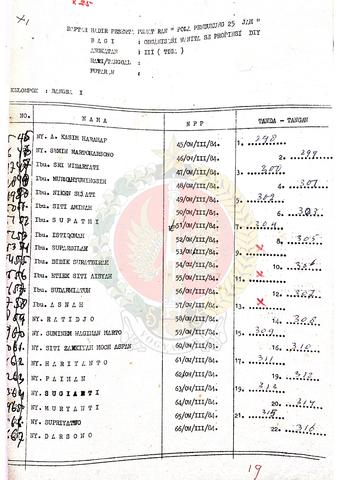 DAFTAR HADIR PESERTA PENATARAN " POLA PENDUKUNG 25 JAM "
B A G I : ORGANISASI WANITA SE PROPINSI DIY
ANGKATAN : III ( TIGA )
HARI/TANGGAL :
PUTARAN :
KELOMPOK : BANGSA I
NO. N A M A N P P TANDA - TANGAN
NY. A. KASIM HARAHAP 45/OW/III/84. 1. 298
NY. SUMIN MARTOHARSONO 46/OW/III/84. 2. 299
Ibu. SRI WIDARYATI 47/OW/III/84. 3.
Ibu. 48/OW/III/84. 4. 301
Ibu. NIKEN 49/OW/III/84. 5. 302
Ibu. SITI AMINAH 50/OW/III/84. 6. 303
Ibu. S U P A T M I 51/OW/III/84. 7. 304
Ibu. ISTIQOMAH 52/OW/III/84. 8. 305
Ibu. SUPARDILAH 53/OW/III/84. 9. X
Ibu. DIDIK SURATINAH 54/OW/III/84. 10. 306
Ibu. ETIEK SITI AISYAH 55/OW/III/84. 11. X
Ibu. SUDARMIATUN 56/OW/III/84. 12. 307
Ibu. A S N A H 57/OW/III/84. 13. X
NY. R A T I D J O 58/OW/III/84. 14. 308
NY. SUMINEM WAGIMAN MARTO 59/OW/III/84. 15. 309
NY. SITI ZAMSIYAH MOCH ASFAN 60/OW/III/84. 16. 310
NY. H A R I Y A N T O 61/OW/III/84. 17. 311
NY. P A I M A N 62/OW/III/84. 18. 312
NY. S U G I A N T I 63/OW/III/84. 19. 313
NY. M U R Y A N T I 64/OW/III/84. 20. 314
NY. SUPRIYATNO 65/OW/III/84. 21. 315
NY. D A R S O N O 66/OW/III/84. 22. 316
19